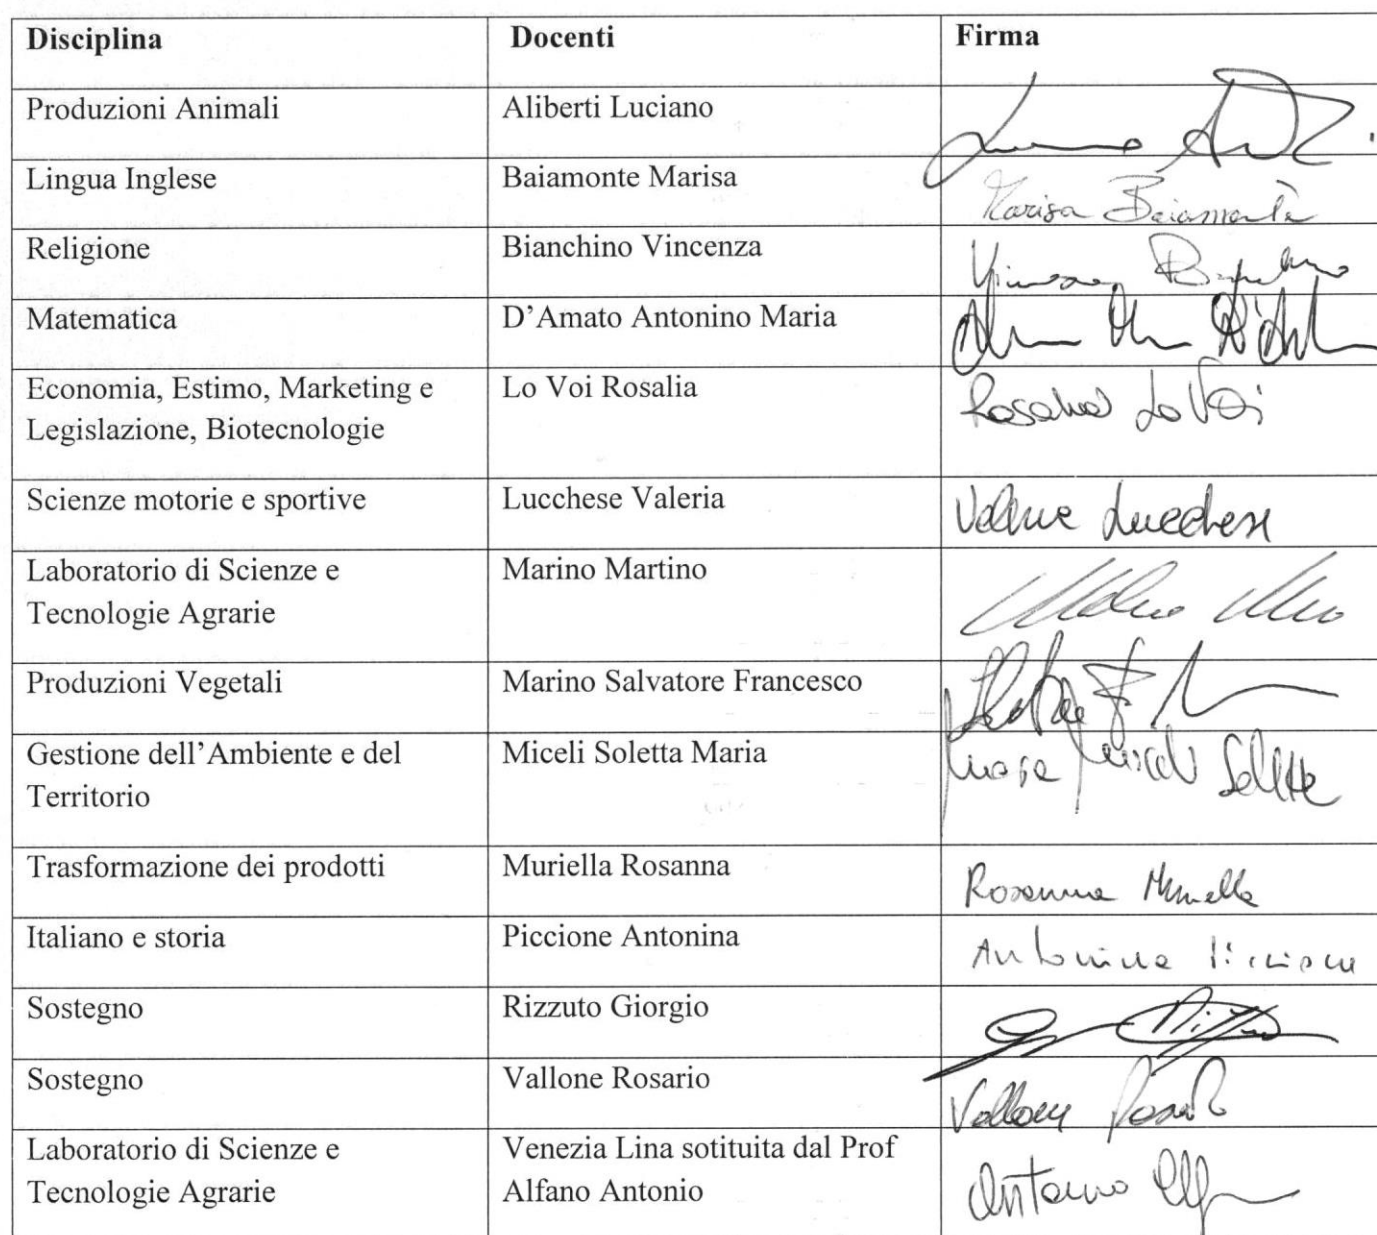 Disciplina Docenti Firma
Produzioni Animali Aliberti Luciano
Lingua Inglese Baiamonte Marisa Marisa Baiamonte
Religione Bianchino Vincenza
Matematica D'Amato Antonino Maria
Economia, Estimo, Marketing e Lo Voi Rosalia Rosalia Lo Voi
Legislazione, Biotecnologie
Scienze motorie e sportive Lucchese Valeria Valeria Lucchese
Laboratorio di Scienze e Marino Martino
Tecnologie Agrarie
Produzioni Vegetali Marino Salvatore Francesco
Gestione dell'Ambiente e del Miceli Soletta Maria Maria Miceli Soletta
Territorio
Trasformazione dei prodotti Muriella Rosanna Rosanna Muriella
Italiano e storia Piccione Antonina Antonina Piccione
Sostegno Rizzuto Giorgio
Sostegno Vallone Rosario Vallone Rosario
Laboratorio di Scienze e Venezia Lina sotituita dal Prof
Tecnologie Agrarie Alfano Antonio Antonio